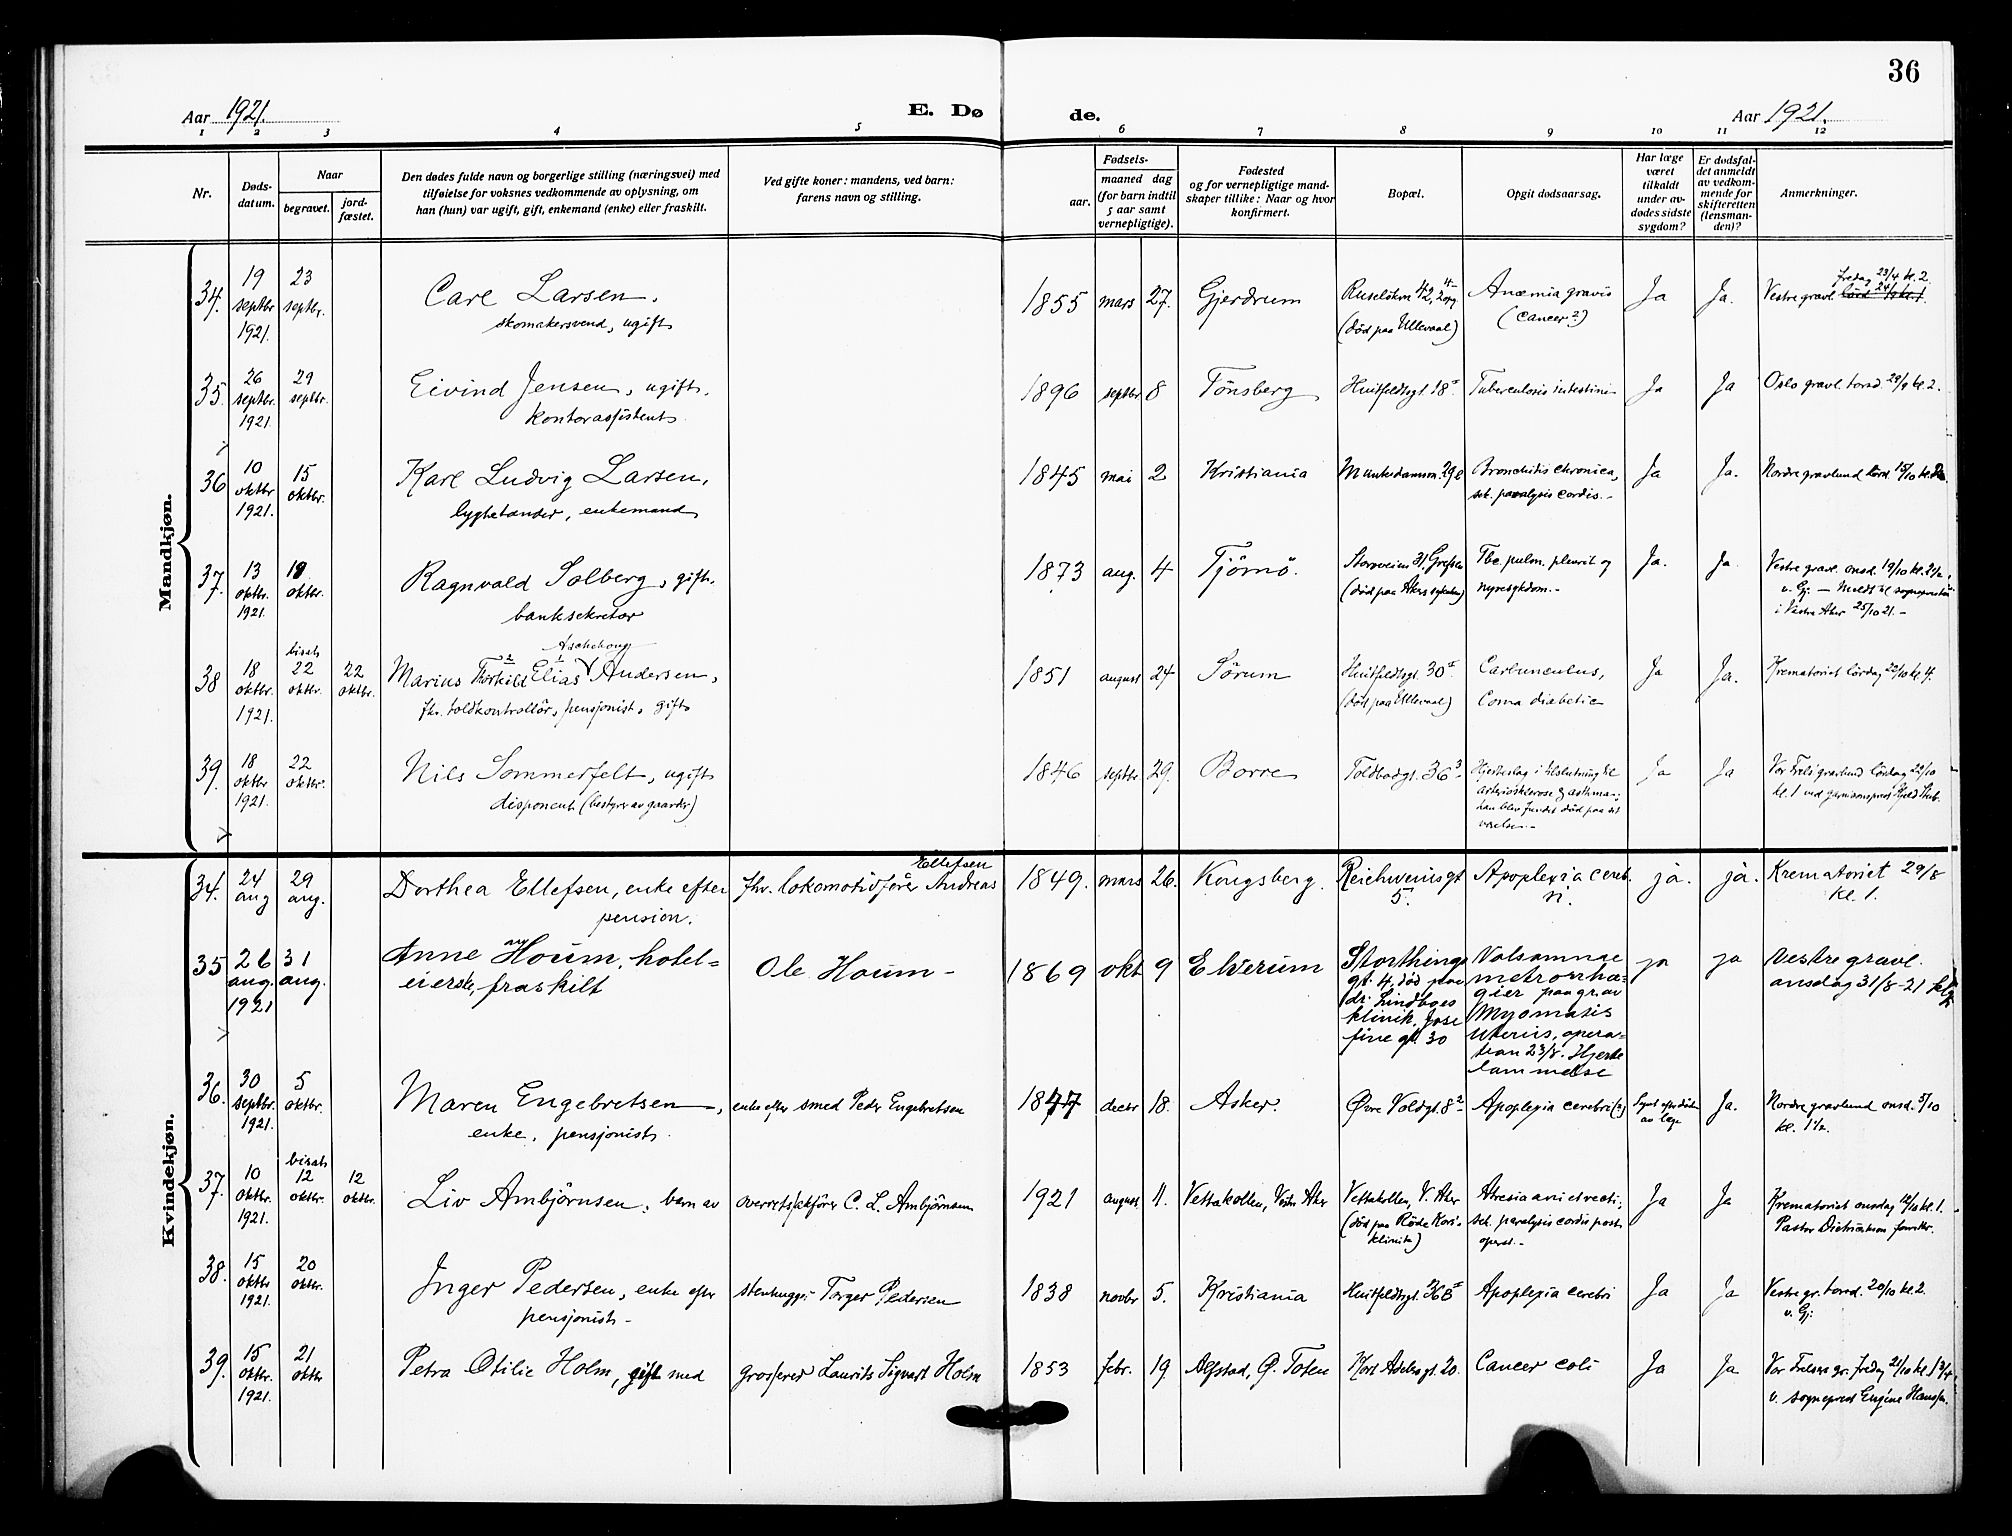 36
Aar 1921.
E. Døde.
Aar 1921.
1 2 3 4 5 6 7 8 9 10 11 12
Nr.
Døds-
datum.
Naar
begravet.
jord-
fæstet.
Den dødes fulde navn og borgerlige stilling (næringsvei) med
tilføielse for voksnes vedkommende av oplysning, om
han (hun) var ugift, gift, enkemand (enke) eller fraskilt.
Ved gifte koner: mandens, ved barn:
farens navn og stilling.
Fødsels-
aar.
maaned dag
(for barn indtil
5 aar samt
vernepligtige).
Fødested
og for vernepligtige mand-
skaper tillike: Naar og hvor
konfirmert.
Bopæl.
Opgit dødsaarsag.
Har læge
været
tilkaldt
under av-
dødes sidste
sygdom?
Er dødsfal-
det anmeldt
av vedkom-
mende for
skifteretten
(lensman-
den)?
Anmerkninger.
Mandkjøn.
34. 19 septbr 1921. 23 septbr. Carl Larsen, skomakersvend, ugift 1855 mars 27. Gjerdrum (død paa Ullevaal) Anæmia gravis (cancer?) Ja Ja. Vestre gravl. fredag 23/9 kl. 2.
35. 26 septbr. 1921. 29 septbr. Eivind Jensen, ugift, kontorassistent 1896 septbr 8 Tönsberg Huitfeldtsgt. 18 Tuberculosis intestini Ja Ja Oslo gravl. torsd. 29/9 kl. 2.
36 10 oktbr 1921. 15 oktbr. Karl Ludvig Larsen, lygtetænder, enkemand 1845 mai 2 Kristiania Munkedamsv. Bronchitis chronica, sek. paralysis cordis. Ja Ja. Nordre gravlund lörd. 15/10
37. 13 oktbr. 1921. 19 oktbr. Ragnvald Solberg, gift, banksekretær 1873 aug. 4 Tjömö. Storoveien 31, Grefsen (död paa Akers sykehus) Tbc. pulm. pleurit og nyresykdom. Ja. Ja. Vestre gravl. onsd. 19/10 kl. 2 1/2, v. Gj. — Meldt til sognepresten i Vestre Aker 25/10 21.
38 18 oktbr. 1921. bisat 22 oktbr. 22 oktbr. Marius Thorkild Elias Aschehoug Andersen, fhv. toldkontrollör, pensjonist, gift 1851 august 24 Sörum Huitfeldtsgt. 30 (död paa Ullevaal) Carbunculus, Coma diabetic Ja Ja. Krematoriet lördag 22/10 kl. 4.
39. 18 oktbr 1921. 22 oktbr. Nils Sommerfelt, ugift disponent (bestyrer av gaarder) 1846 septbr. 29. Borre Toldbodgt. 36 Hjerteslag i tilslutning til arteriosklerose & asthma; han blev fundet död paa sit værelse. Ja Ja Vor Frels. gravlund lördag 22/10 kl. 1 ved garnisonsprest Kjeld Stub.
Kvindekjøn.
34. 24 aug 29 aug. Dorthea Ellefsen, enke efter pension. fhv. lokomotivfører Andreas Ellefsen 1849. mars 26. Kongsberg. Reichweinsgt 5. Apoplexia cerebri. ja. ja. Krematoriet 29/8 kl. 1.
35 26 aug. 1921 31 aug. Anne Houm, hotel-eierske, fraskilt Ole Houm - 1869 okt 9 Elverum Storthings gt. 4, död paa dr. Lindboes klinik, Josefine gt. 30 Volsomme metrorrhagier paa gr. av Myomatis Uterus, operation 23/8. Hjertelammelse ja ja Vestre gravl. onsdag 31/8-21
36. 30 septbr. 1921. 5 oktbr. Maren Engebretsen, enke, pensjonist. enke efter smed Peder Engebretsen 1847 decbr 18. Asker. Øvre Voldgt. 8 Apoplexia cerebri (?) Synet efter döden av læge Ja. Nordre gravlund onsd. 5/10 kl. 1 1/2.
37. 10 oktbr. 1921. bisat 12 oktbr. 12 oktbr. Liv Ambjörnsen, barn av overretssakförer C. L. Ambjörnsen 1921 august 11. Vettakollen, Vestre Aker Vettakollen, V. Aker (död paa Röde Kors' klinik) Atresia ani et recti; sek. paralysis cordis post operat. Ja Ja Krematoriet onsdag 12/10 kl. 1. Pastor Dietrichson forretter.
38. 15 oktbr 1921. 20 oktbr. Inger Pedersen, enke efter pensjonist - stenhugger Torger Pedersen 1838 novbr 5. Kristiania Huitfeldtsgt. 36 B Apoplexia cerebri Ja Ja Vestre gr. torsd. 20/10 kl. 2. v. Gj.
39. 15 oktbr. 1921. 21 oktbr Petra Otilie Holm, gift med grosserer Laurits Sigvart Holm 1853 febr. 19 Alfstad, Ø. Toten Kort Adelersgt. 20. Cancer coli Ja Ja Vor Frelsers gr. fredag 21/10 kl. 1 3/4 v. sogneprest Eugène Hanssen.